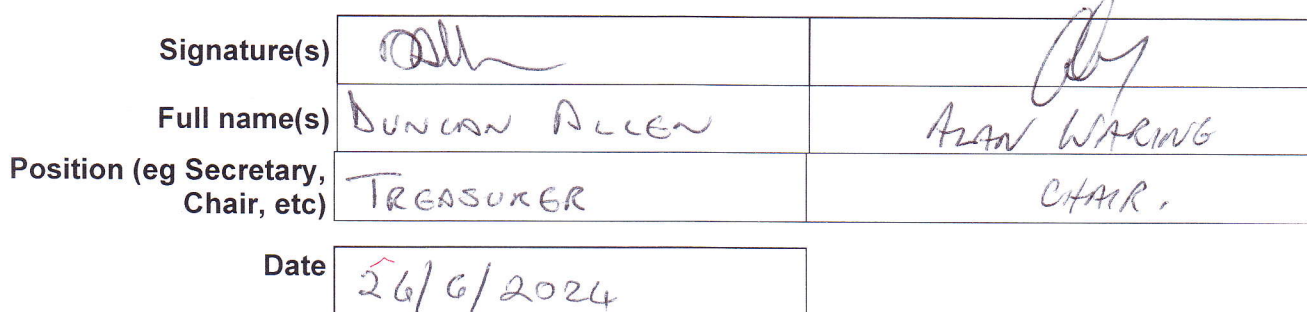 Signature(s)
Full name(s) DUNCAN ALLEN ALAN WARING
Position (eg Secretary,
Chair, etc) TREASURER CHAIR.
Date 26/6/2024